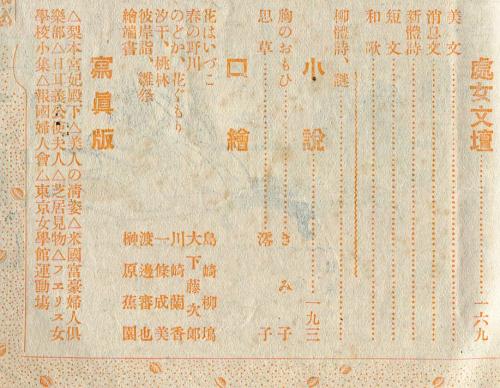 處女文壇
美文
消息文
新體詩
短文
和歌
柳體詩、謎 一六九
小說
胸のおもひ きみ子 一九三
思草 澪子
口繪
花はいづこ 島崎柳塢
春の野川 大下藤次郎
のどか、花ぐもり 川崎蘭香
汐干、桃林 一條成美
彼岸詣、雛祭 渡邊審也
繪端書 榊原蕉園
寫眞版
△梨本宮妃殿下△美人の清姿△米國富豪婦人俱
樂部△日耳義公使夫人△芝居見物△フエリス女
學校小集△報國婦人會△東京女學館運動場